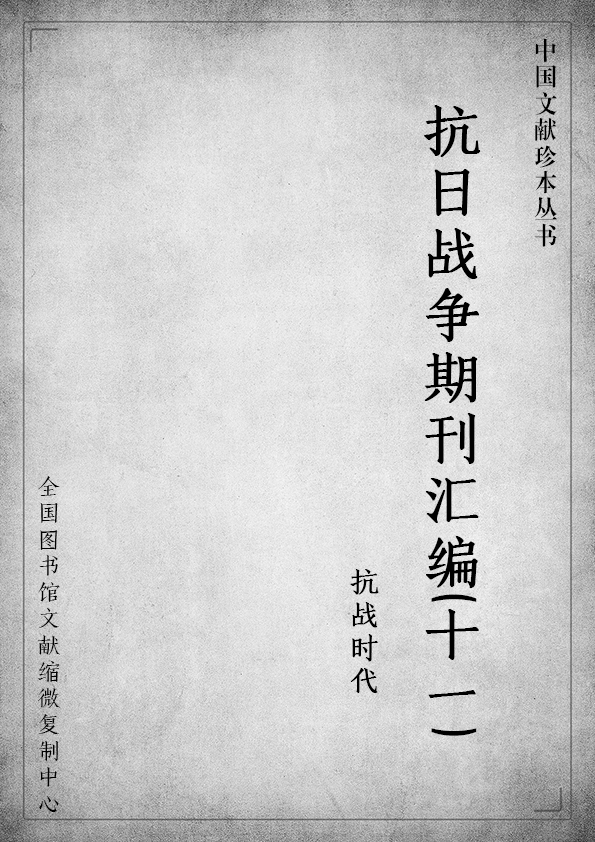 中国文献珍本丛书
抗日战争期刊汇编(十一)
抗战时代
全国图书馆文献缩微复制中心